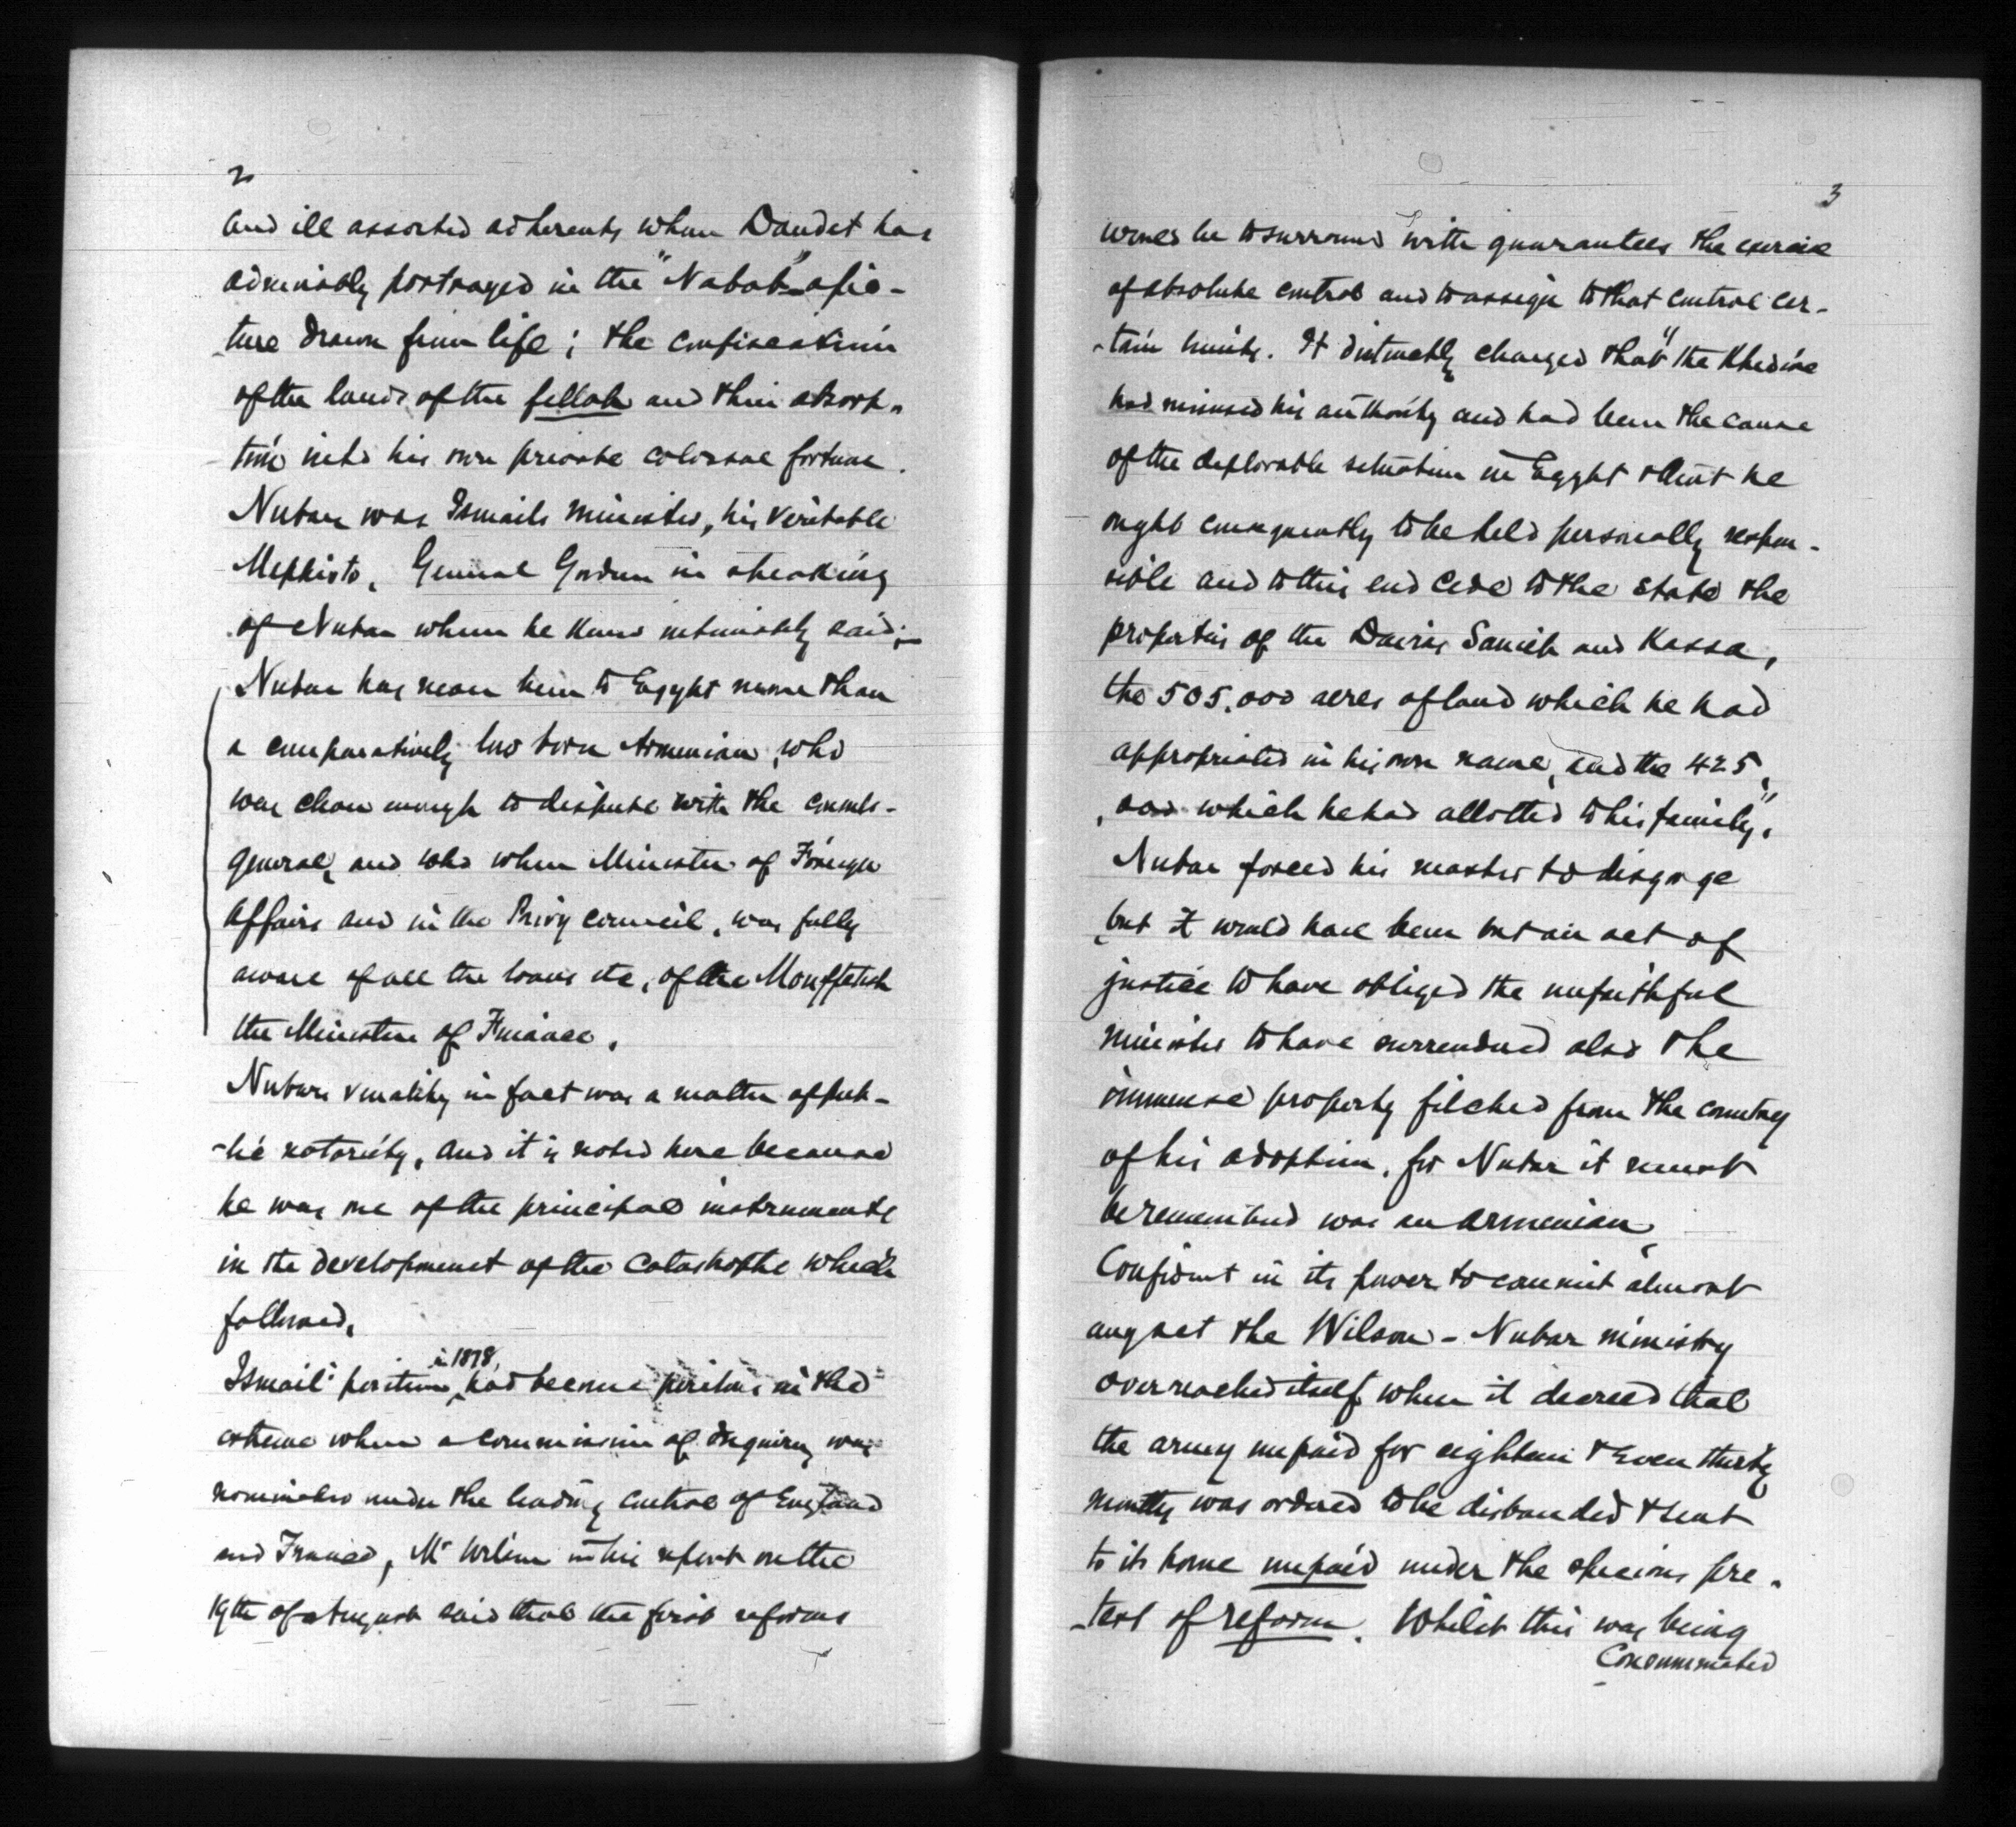 2
and ill assorted adherents whom Daudet has
admirably portrayed in the "Nabab" a pic-
-ture drawn from life; the confiscation
of the lands of the fellah and their absorp-
-tion into his own private colossal fortune.
Nubar was Ismails minister, his veritable
Mephisto. General Gordon in speaking
of Nubar whom he knew intimately said:—
Nubar has never been to Egypt more than
a comparatively low born Armenian, who
was clever enough to dispute with the consuls-
general, and who when Minister of Foreign
Affairs and in the Privy council, was fully
aware of all the loans etc, of the Mouffetish
the Minister of Finance.
Nubars venality in fact was a matter of pub-
-lic notoriety, and it is noted here because
he was one of the principal instruments
in the development of the catastrophe which
followed.
Ismail' position in 1878, had become perilous in the
extreme when a commission of Inquiry was
nominated under the leading control of England
and France, Mr Wilson in his report on the
19th of August said that the first reforms
3
would be to surround with guarantees the exercise
of absolute control and to assign to that control cer-
-tain limits. It distinctly charged that "the Khedive
had misused his authority and had been the cause
of the deplorable situation in Egypt & that he
ought consequently to be held personally respon-
sible and to this end cede to the state the
properties of the Dairas Sanieh and Kassa,
the 505,000 acres of land which he had
appropriated in his own name, and the 425,
,000 which he had allotted to his family".
Nubar forced his master to disgorge
but it would have been but an act of
justice to have obliged the unfaithful
minister to have surrendered also the
immense property filched from the country
of his adoption, for Nubar it must
be remembered was an Armenian.
Confident in its power to commit almost
any act the Wilson-Nubar ministry
overreached itself when it decreed that
the army unpaid for eighteen & even thirty
months was ordered to be disbanded & sent
to its home unpaid under the specious pre-
-text of reform. Whilst this was being
Consummated